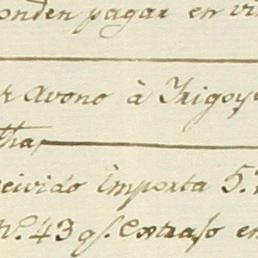 onden pagar en vi
r avono à Yrigoy
tha,
ceivido importa 5.
No. 43 qs. Extraso en